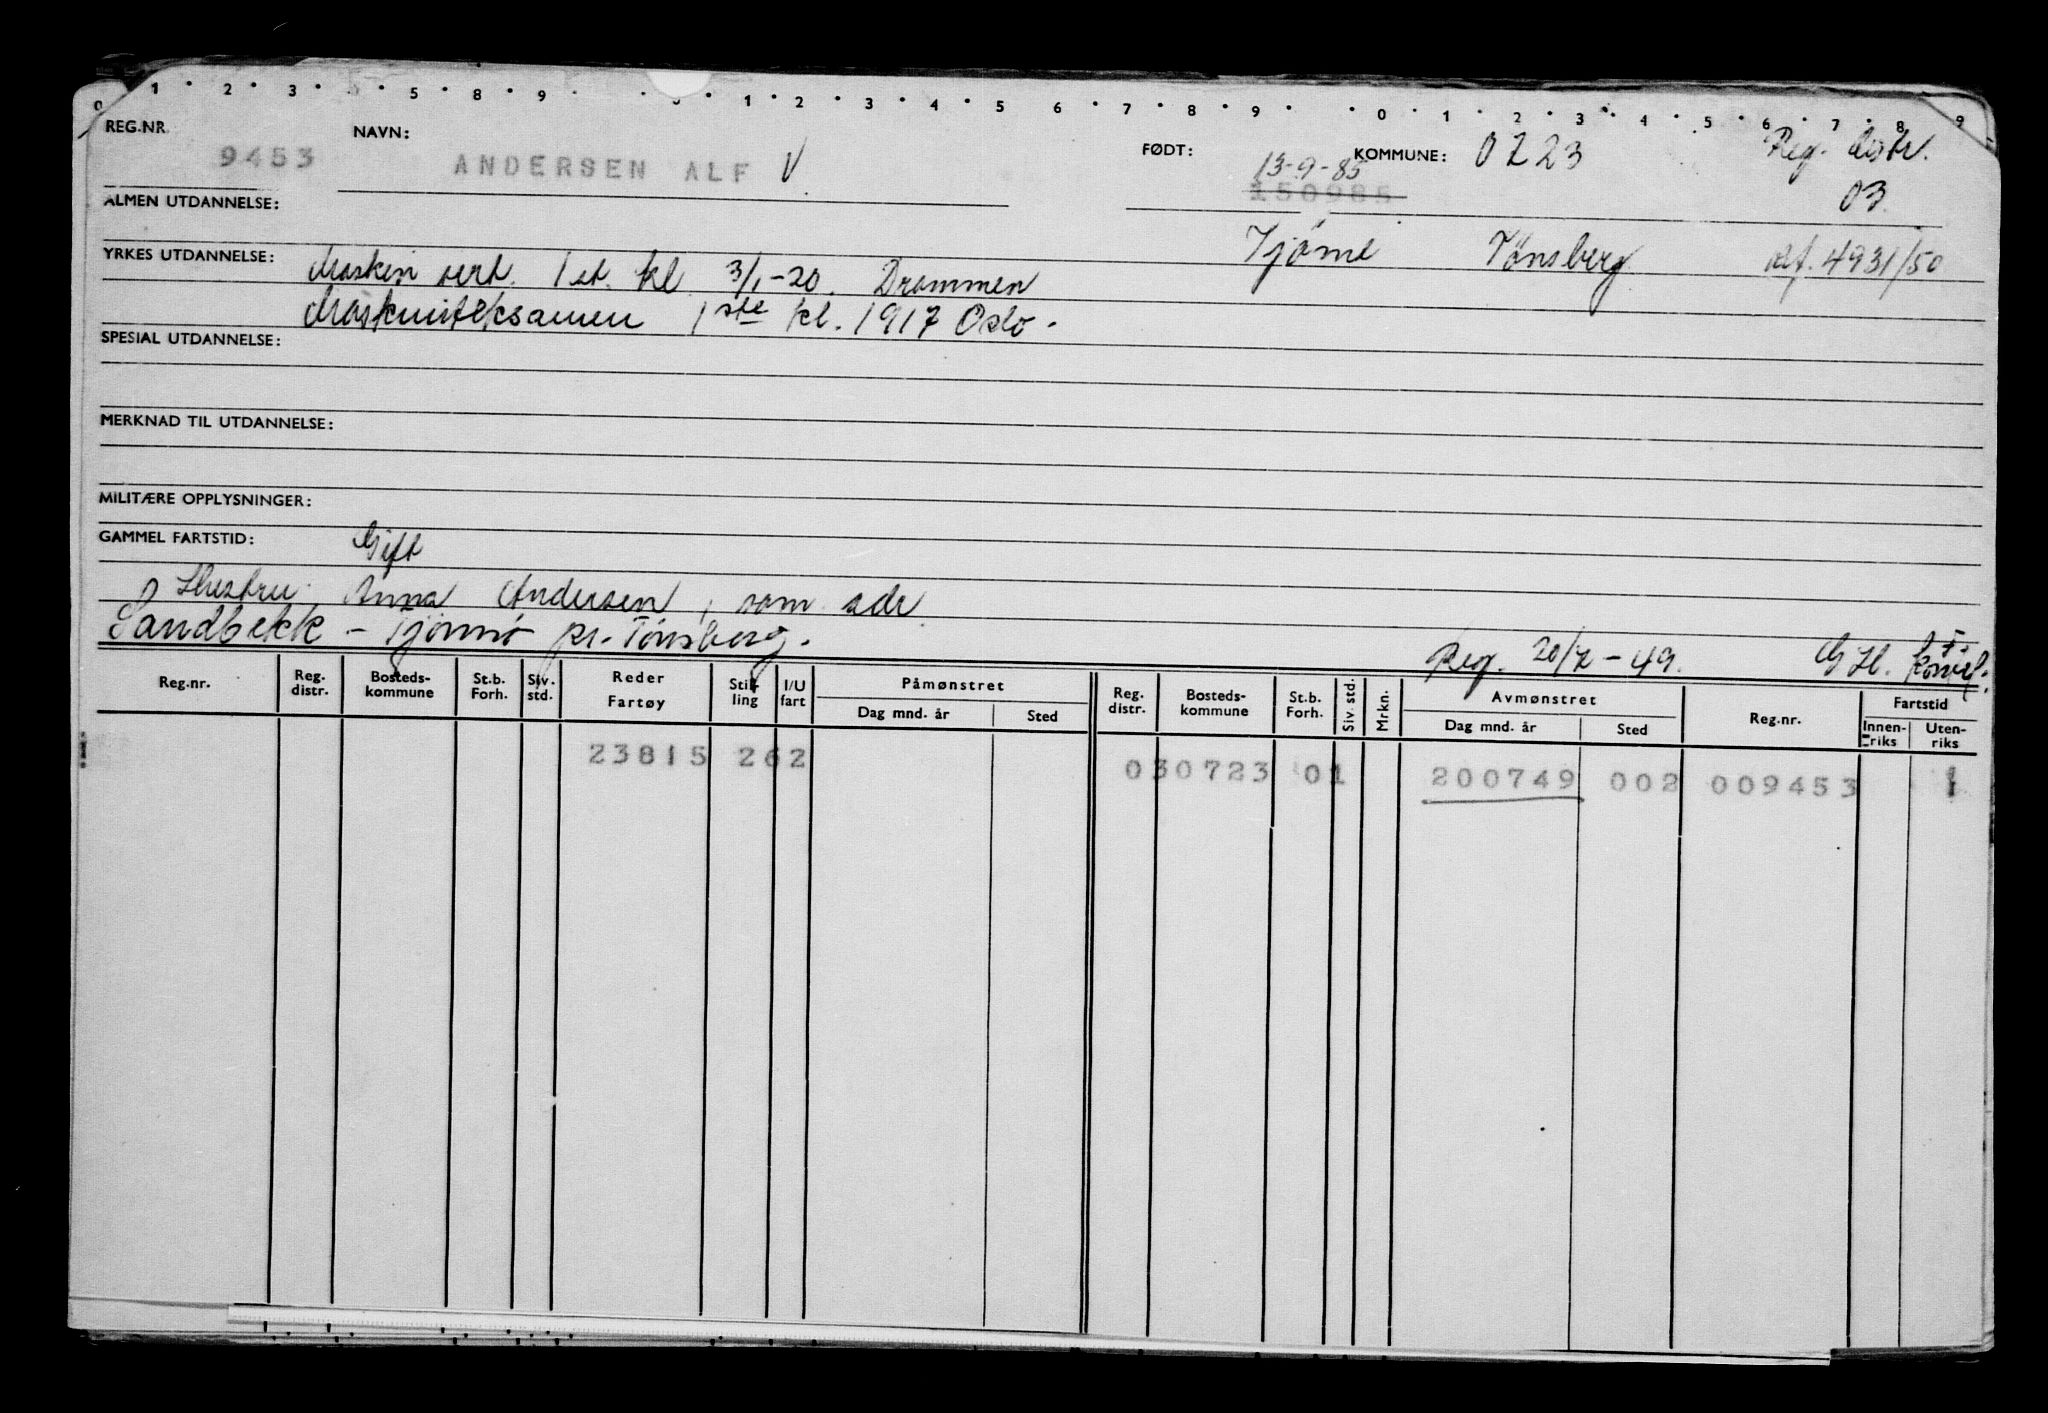 0 1 2 3 5 8 9 1 2 3 4 5 6 7 8 9 0 1 2 3 4 5 6 7 8 9
REG.NR. NAVN: FØDT: KOMMUNE: 0723 Reg. distr.
9453 ANDERSEN ALF V 13-9-85 03
150985
ALMEN UTDANNELSE:
Tjöme Tønsberg ref. 4931/50
YRKES UTDANNELSE: Maskin sert. 1 st. kl. 3/1-20. Drammen
Maskinisteksamen 1ste kl. 1917 Oslo.
SPESIAL UTDANNELSE:
MERKNAD TIL UTDANNELSE:
MILITÆRE OPPLYSNINGER:
GAMMEL FARTSTID: Gift
Hustru: Anna Andersen, sam. adr.
Sandbekk - Tjømø pr. Tønsberg.
Reg. 20/7-49. G.H.
Reg.nr. Reg. distr. Bosteds-kommune St.b. Forh. Siv. std. Reder Fartøy Stil-ling I/U fart Påmønstret Dag mnd. år Sted Reg. distr. Bosteds-kommune St.b. Forh. Siv. std. Mrkn. Avmønstret Dag mnd. år Sted Reg.nr. Fartstid Innen-riks Uten-riks
1 23815 262 030723 01 200749 002 009453 1